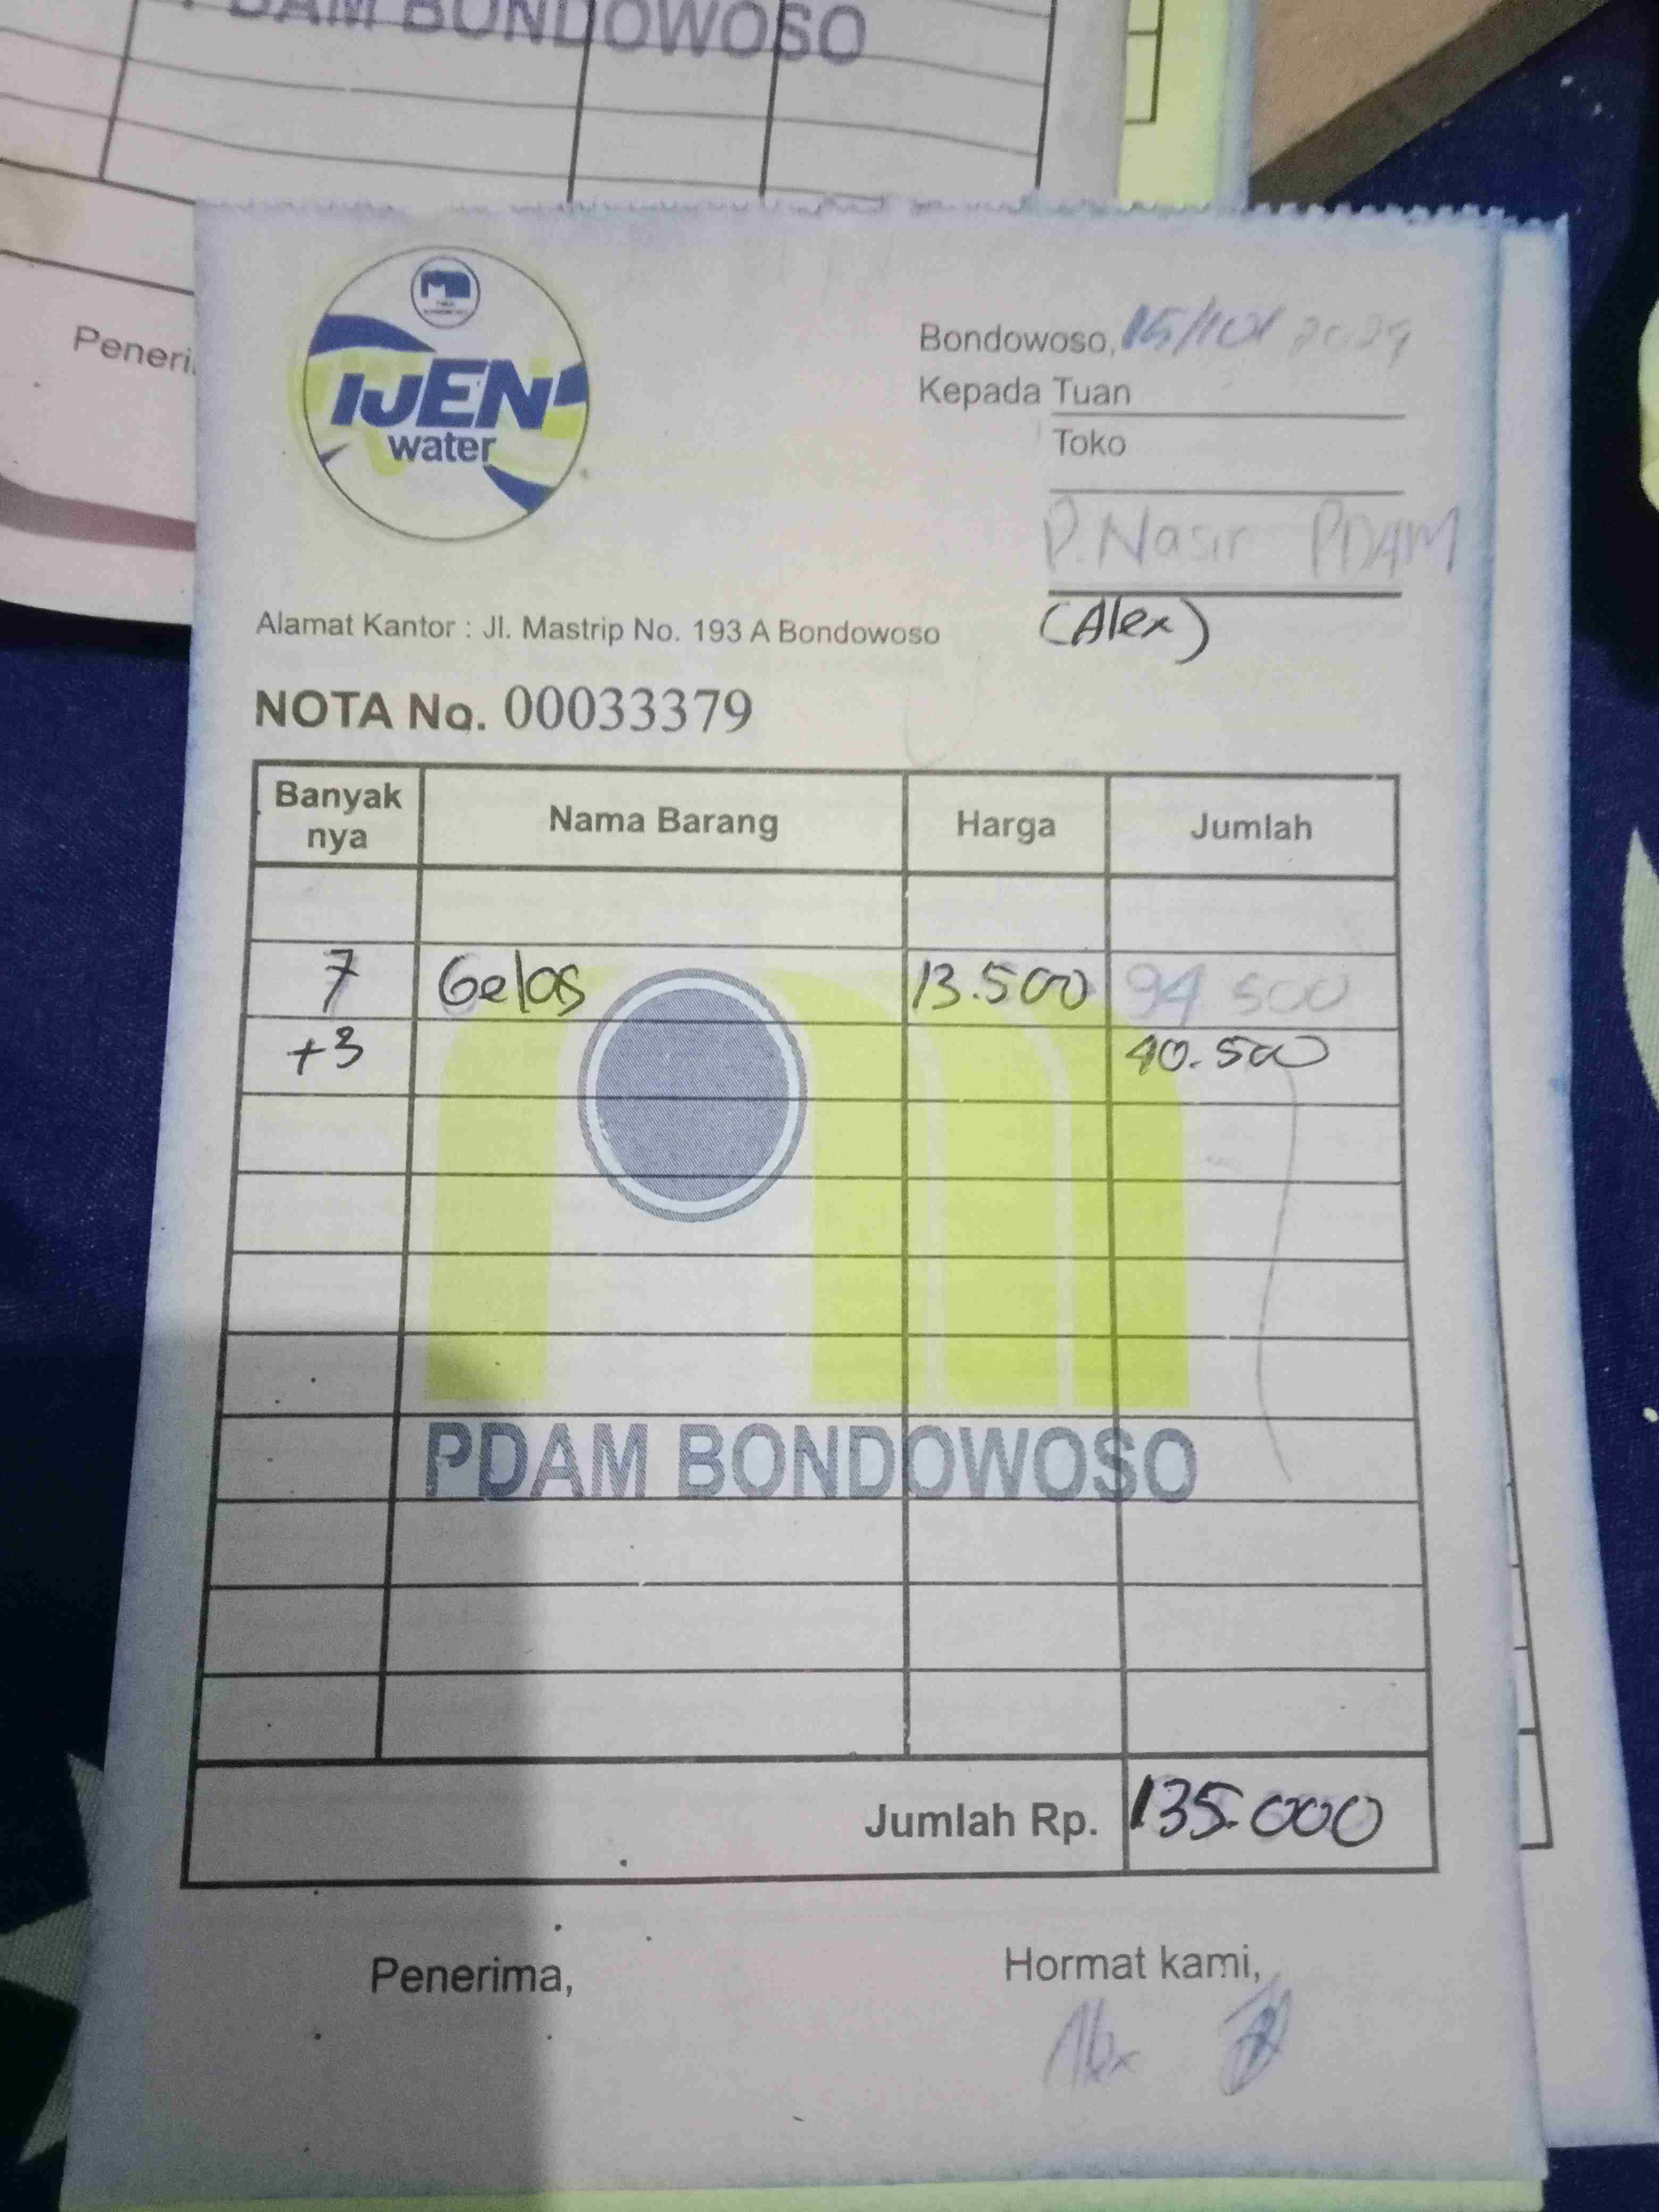 DAM BONDOWOSO
Peneri
IJEN
water
Bondowoso, 15/10/2024
Kepada Tuan
Toko
P. Nasir PDAM
(Alex)
Alamat Kantor : Jl. Mastrip No. 193 A Bondowoso
NOTA No. 00033379
Banyak nya Nama Barang Harga Jumlah
7 Gelas 13.500 94.500
+3 40.500
PDAM BONDOWOSO
Jumlah Rp. 135.000
Penerima, Hormat kami,
Alex